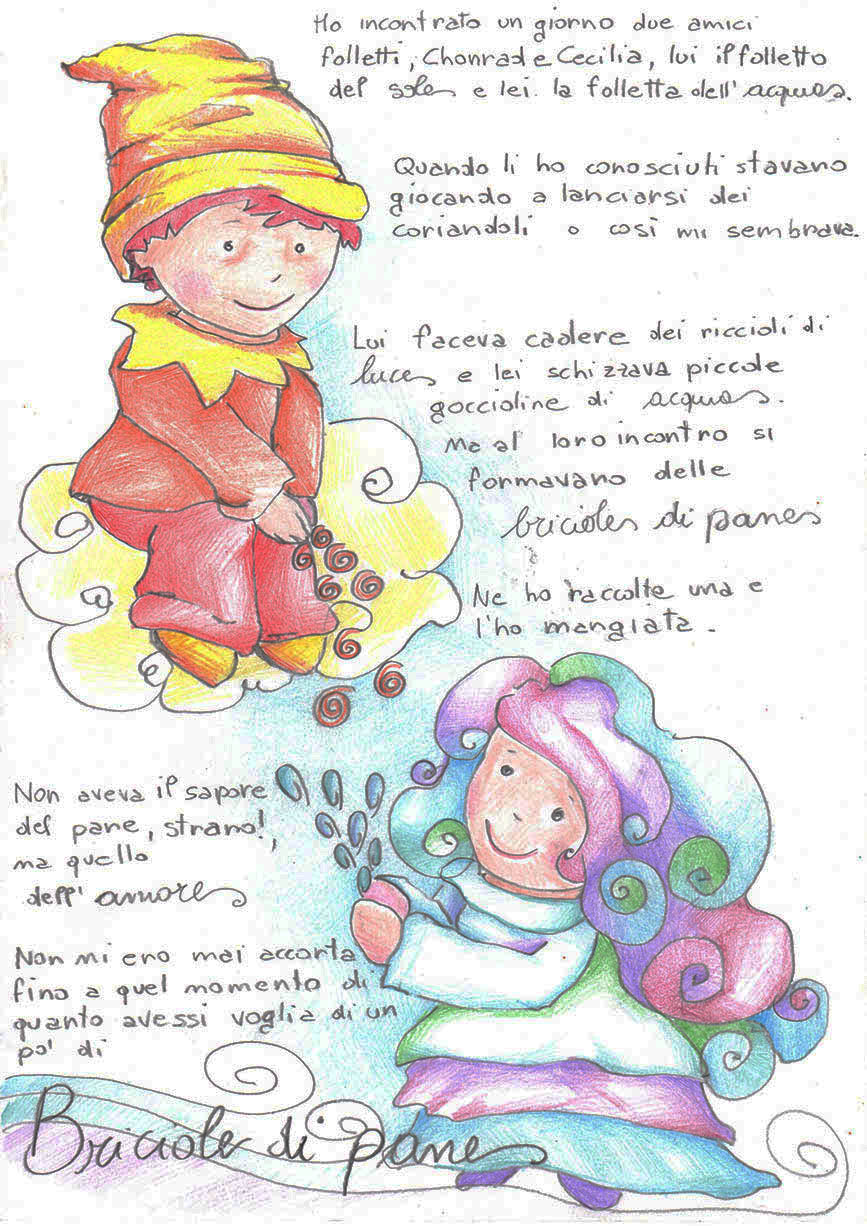 Ho incontrato un giorno due amici
folletti, Chonrad e Cecilia, lui il folletto
del sole e lei la folletta dell'acqua.
Quando li ho conosciuti stavano
giocando a lanciarsi dei
coriandoli o così mi sembrava.
Lui faceva cadere dei riccioli di
luce e lei schizzava piccole
goccioline di acqua.
Ma al loro incontro si
formavano delle
briciole di pane
Ne ho raccolte una e
l'ho mangiata.
Non aveva il sapore
del pane, strano!,
ma quello
dell'amore
Non mi ero mai accorta
fino a quel momento di
quanto avessi voglia di un
po' di
Briciole di pane